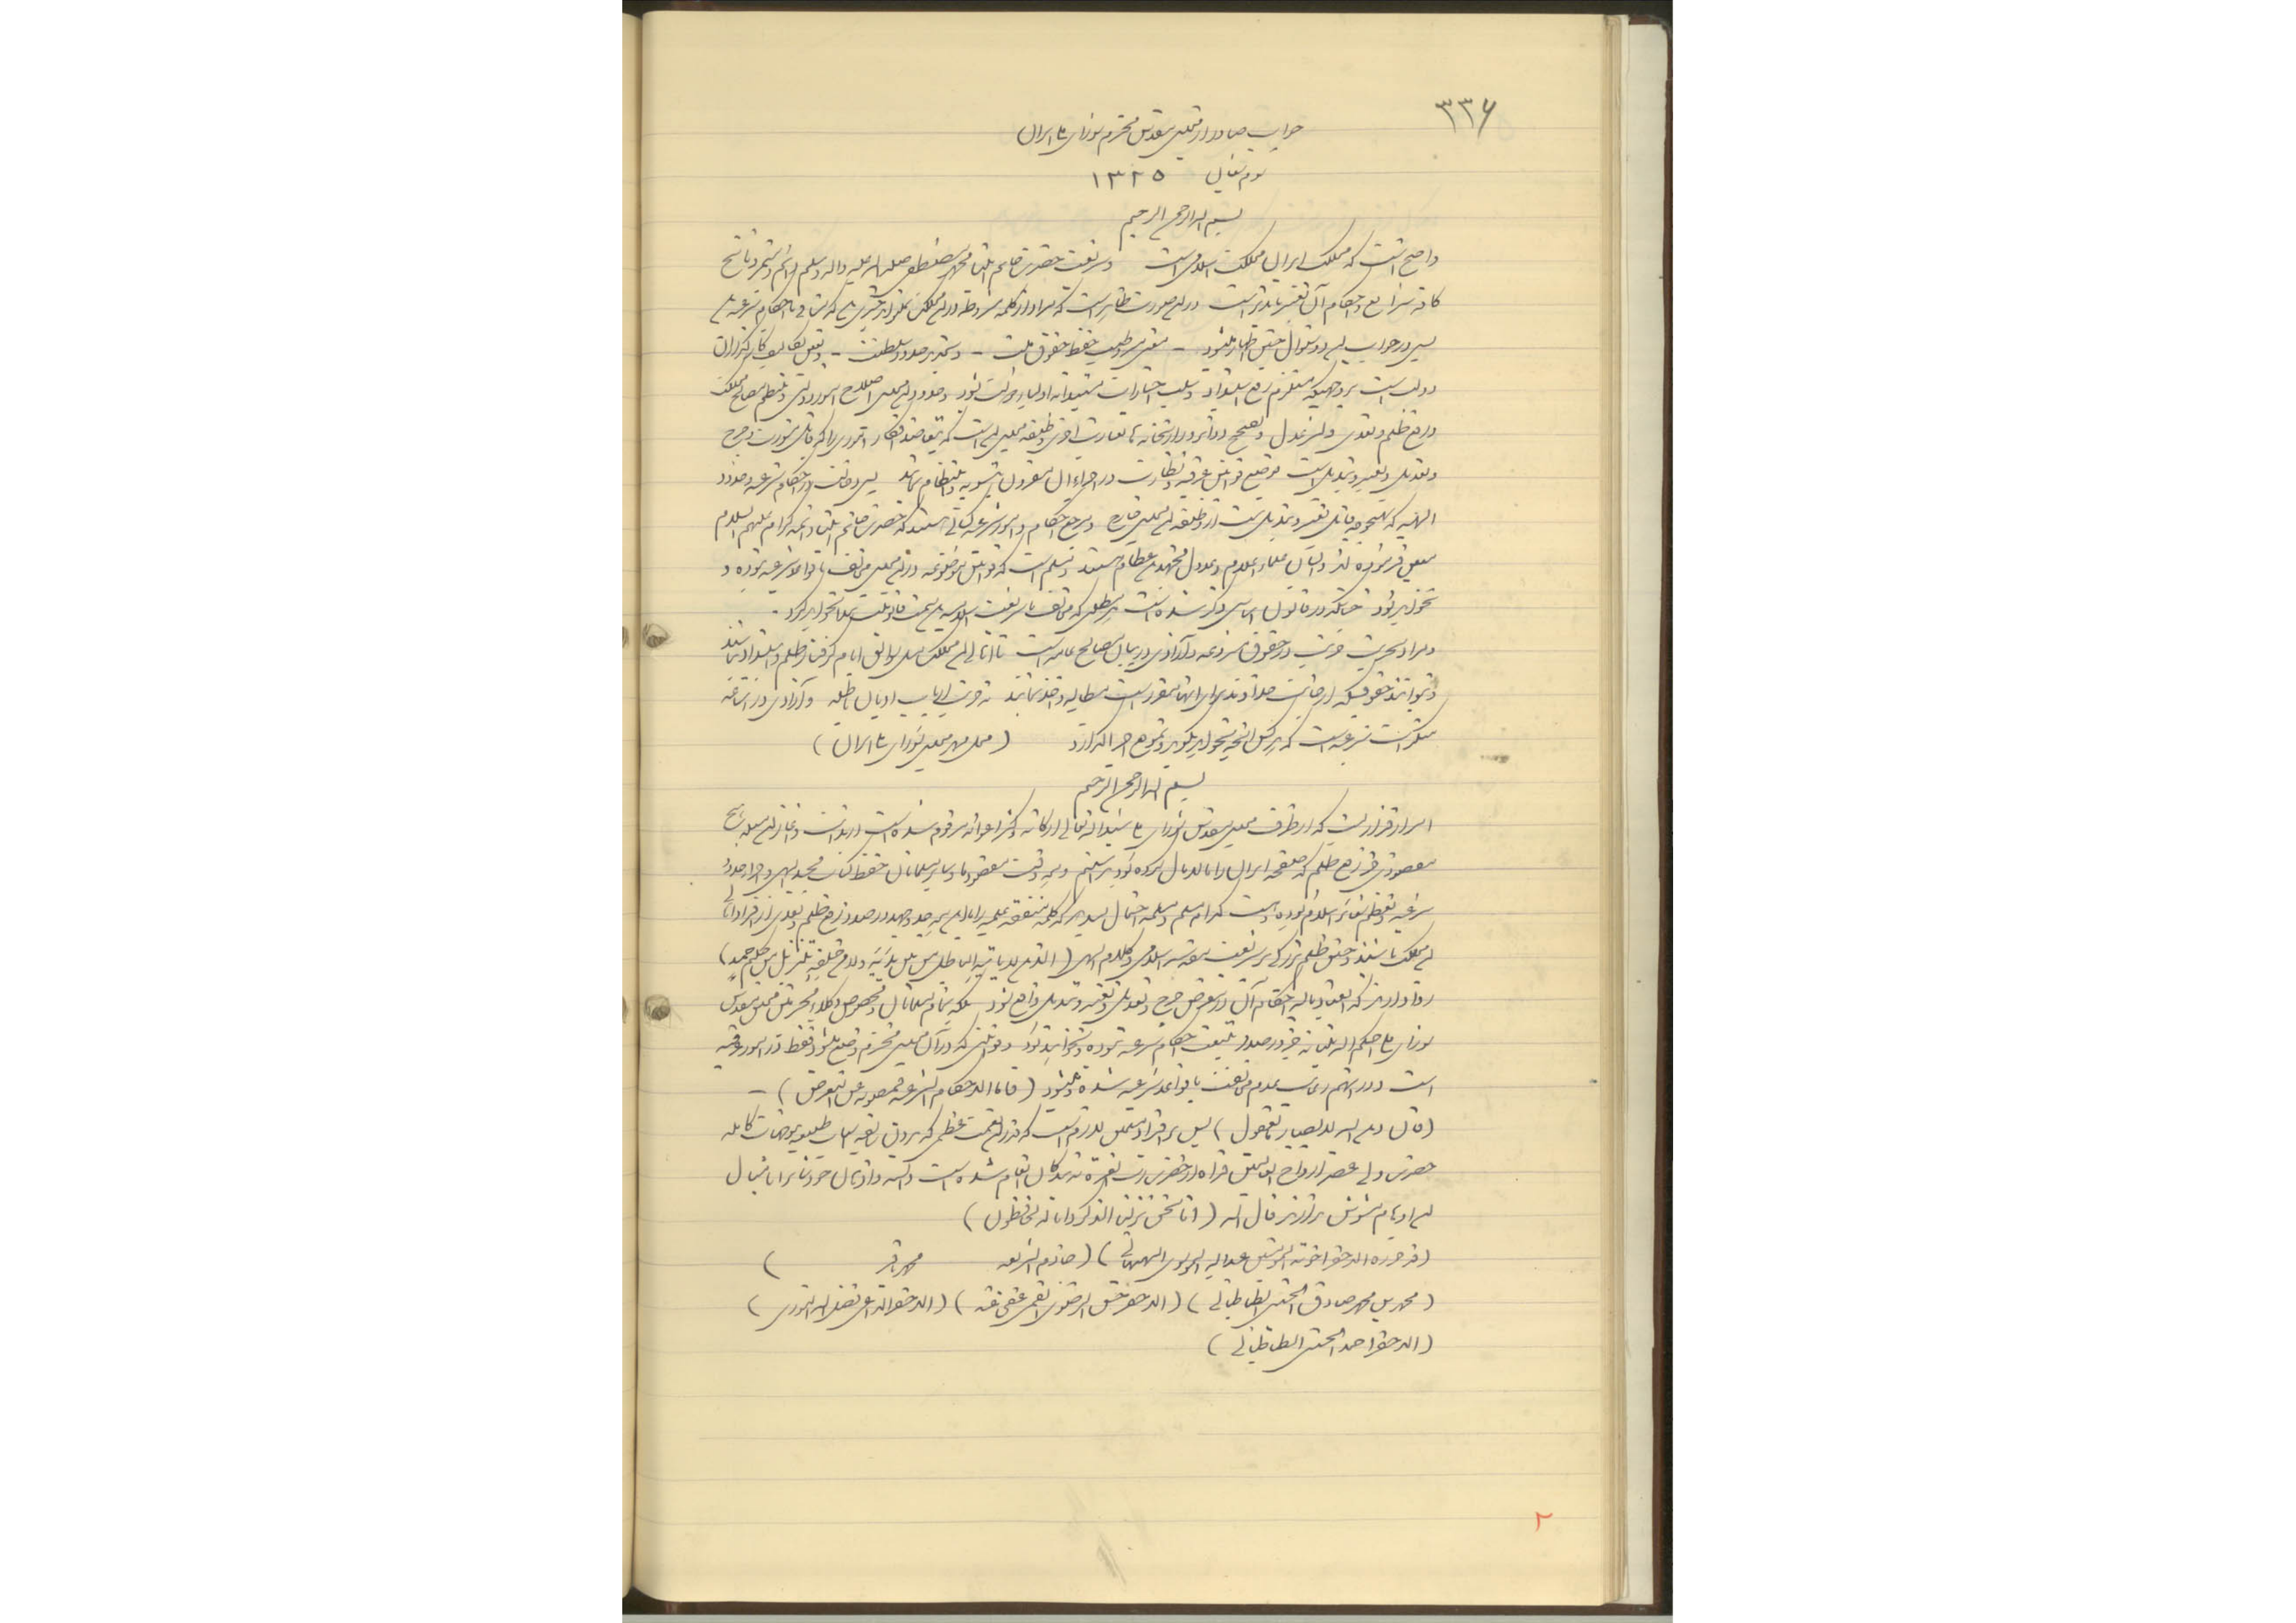 ۳۳۶
جواب صادر از مجلس مقدس محترم شورای ملی ایران
دوم شعبان ۱۳۲۵
بسم الله الرحمن الرحیم
واضح است که مملکت ایران مملکت اسلامی است و شریعت حضرت خاتم النبیین محمد مصطفی صلی الله علیه و اله و سلم دائم و مستمر و ناسخ
کافه شرایع و احکام آن تغییر ناپذیر است در این صورت ظاهر است که مراد از کلمه مشروطه در این مملکت نمیتواند چیزی باشد که منافی با احکام شرعیه باشد
پس در جواب این دو سئوال چنین اظهار میشود - معنی مشروطیت حفظ حقوق ملت - و تحدید حدود سلطنت - و تعیین تکالیف کارگذاران
دولت است بر وجهیکه مستلزم رفع استبداد و سلب اختیارات مستبدانه اولیای دولت بشود و حدود این مجلس اصلاح امور دولتی و تنظیم مصالح مملکت
و رفع ظلم و تعدی و نشر عدل و تصحیح دوائر وزارتخانه ها بعبارت اخری وظیفه مجلس این است که بتعاضد افکار اموری را که قابل مشورت و جرح
و تعدیل و تغییر و تبدیل است بوضع قوانین عرفیه و نظارت در اجراء آن مقرون بتسویه و انتظام نماید پس دخالت در احکام شرعیه و حدود
الهیه که بهیچوجه قابل تغییر و تبدیل نیست از وظیفه این مجلس خارج و مرجع احکام و امور شرعیه کسانی هستند که حضرت خاتم النبیین و ائمه کرام علیهم السلام
معین فرموده اند و ایشان علماء اعلام و عدول مجتهدین عظام هستند و مسلم است که قوانین موضوعه در این مجلس مخالف با قواعد شرعیه نبوده و
نخواهد بود چنانکه در قانون اساسی ذکر شده است هر مطلبی که مخالف با شریعت اسلامیه باشد سمت قانونیت پیدا نخواهد کرد -
و مراد بحریت حریت در حقوق مشروعه و آزادی در بیان مصالح عامه است تا اهالی این مملکت مثل سوابق ایام گرفتار ظلم و استبداد نباشند
و بتوانند حقوقیکه از جانب خداوند برای آنها مقرر است مطالبه و اخذ نمایند نه حریت ارباب ادیان باطله و آزادی در اشاعه
منکرات شرعیه است که هر کس آنچه بخواهد بگوید و بموقع اجرا گذارد (محل مهر مجلس شورای ملی ایران)
بسم الله الرحمن الرحیم
امر از قراری است که از طرف مجلس مقدس شورای ملی شید الله تعالی ارکانه و کثر اعوانه مرقوم شده است از بدایت و آغاز این مسئله هیچ
مقصودی جز رفع ظلم که صفحه ایران را پایمال کرده بود نداشتیم و همه وقت مقصود ما و سایر مسلمانان حفظ کتاب مجید الهی و اجراء حدود
شرعیه و تعظیم شعائر اسلام بوده و هست کدام مسلم و مسلمه احتمال میدهد که کلمه متفقه علمیه با این همه جد و جهد در صدد رفع ظلم و تعدی از افراد اهالی
این مملکت باشند و چنین ظلم بزرگی بر شریعت مقدسه اسلامی و کلام الهی (الذی لا یاتیه الباطل من بین یدیه و لا من خلفه تنزیل من حکیم حمید)
روا دارند که العیاذ بالله احکام آن در معرض جرح و تعدیل و تغییر و تبدیل واقع شود بلکه تمام مسلمانان و مخصوص وکلاء محترمین مجلس مقدس
شورای ملی احکم الله بنیانه جز در صدد تثبیت احکام شرعیه نبوده و نخواهند بود و قوانینی که در آن مجلس محترم وضع میشود فقط در امور عرفیه
است و در آنهم رعایت عدم مخالفت با قواعد شرعیه شده و میشود (فاما الاحکام الشرعیه فمصونه عن التعرض) -
(قال دین الله لا یصاب بالعقول) پس بر افراد مسلمین لازم است که قدر این نعمت عظمی که بدون شائبه اسباب طبیعیه بتوجهات کامله
حضرت ولی عصر ارواح العالمین فداه از حضرت رب العزة شامل حال انام شده است دانسته و اذهان خود را با مثال
این اوهام مشوش ندارند قال الله (انا نحن نزلنا الذکر و انا له لحافظون)
(قد حرره الاحقر اخوته المؤمنین عبدالله الموسوی البهبهانی) (خادم الشریعه محمد باقر)
(محمد بن محمد صادق الحسینی الطباطبائی) (الاحقر حسین الرضوی القمی عفی عنه) (الاحقر الداعی فضل الله النوری)
(الاحقر احمد الحسینی الطباطبائی)
۲